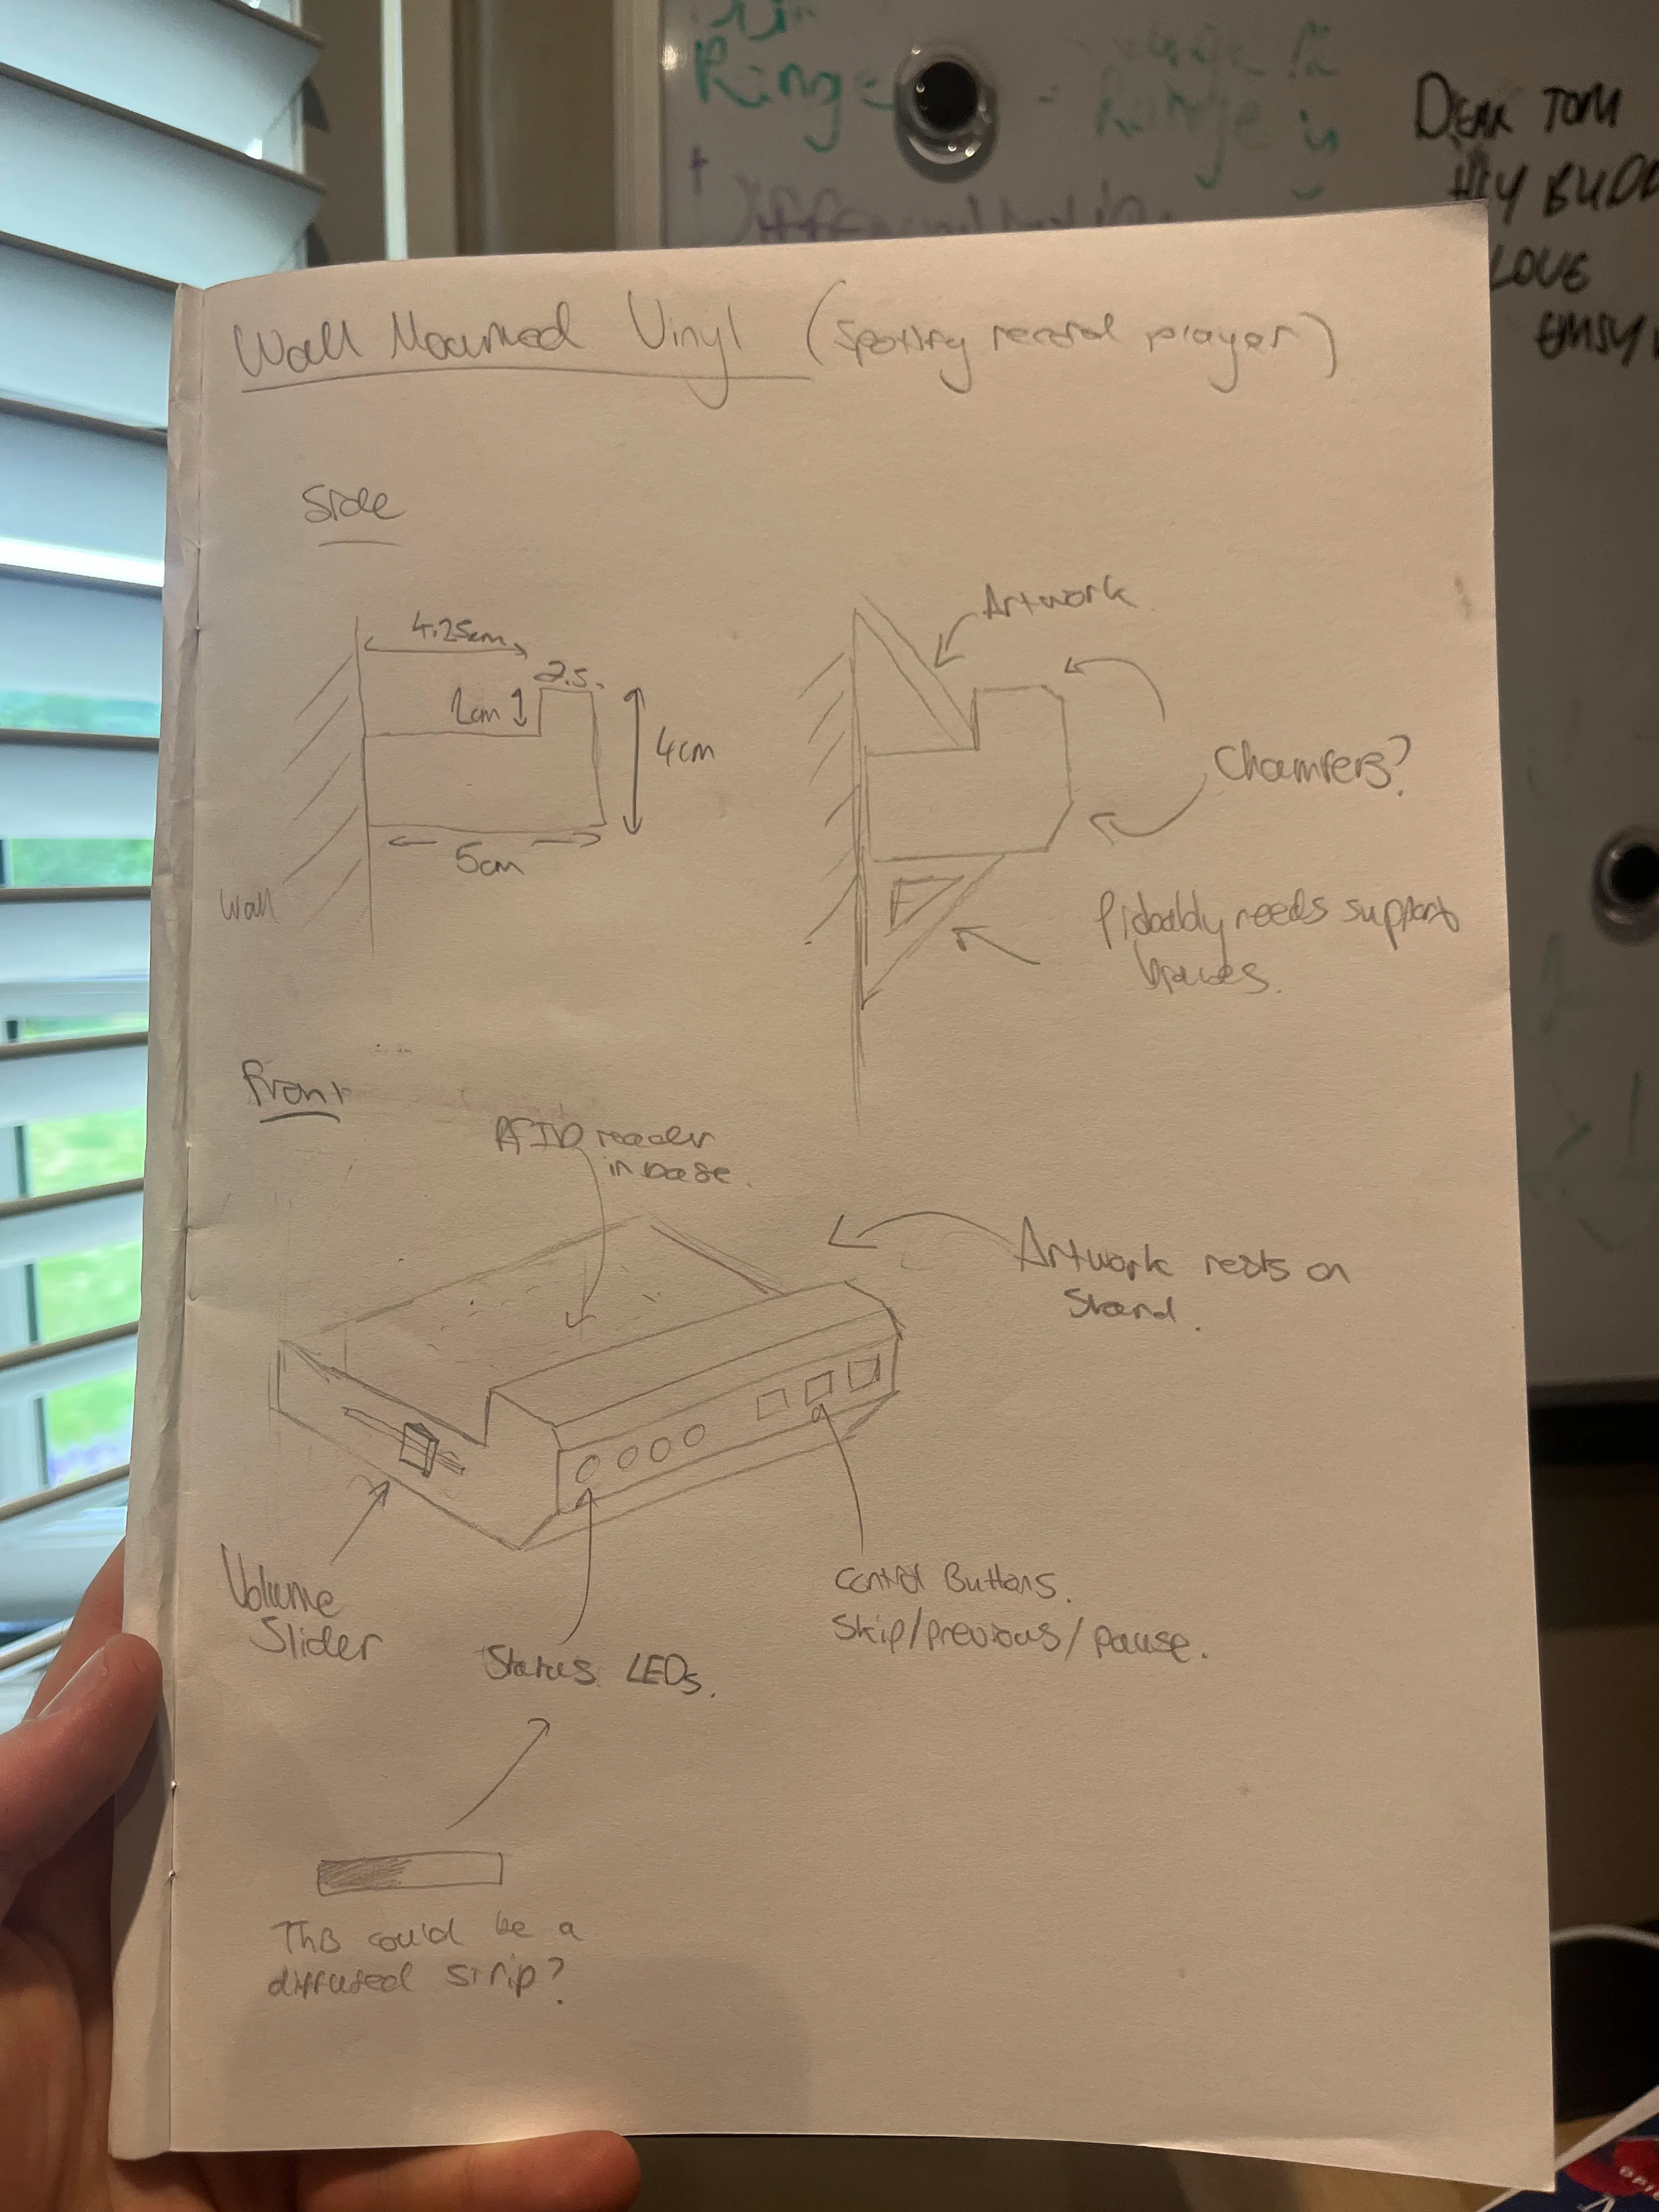 Ring
Range is
DEAR TOM
HEY BUDD
LOVE
EMSY
Wall Mounted Vinyl (Spotify record player)
Side
4.25cm
2.5.
1cm
4cm
5cm
Wall
Artwork
Chamfers?
Probably needs support
braces.
Front
RFID reader
in base.
Artwork rests on
Stand.
Volume
Slider
Status LEDs.
Control Buttons.
Skip/previous/pause.
This could be a
diffused strip?